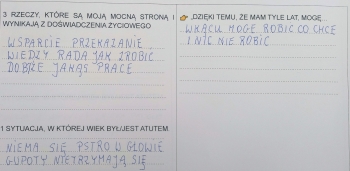 3 RZECZY, KTÓRE SĄ MOJĄ MOCNĄ STRONĄ I
WYNIKAJĄ Z DOŚWIADCZENIA ŻYCIOWEGO
WSPARCIE PRZEKAZANIE
WIEDZY RADA JAK ZROBIĆ
DOBRZE JAKĄŚ PRACE
1 SYTUACJA, W KTÓREJ WIEK BYŁ/JEST ATUTEM.
NIEMA SIĘ PSTRO W GŁOWIE
GUPOTY NIETRZYMAJĄ SIĘ
👉 „DZIĘKI TEMU, ŻE MAM TYLE LAT, MOGĘ...
WKĄCU MOGE ROBIĆ CO CHCE
I NIC NIE ROBIĆ